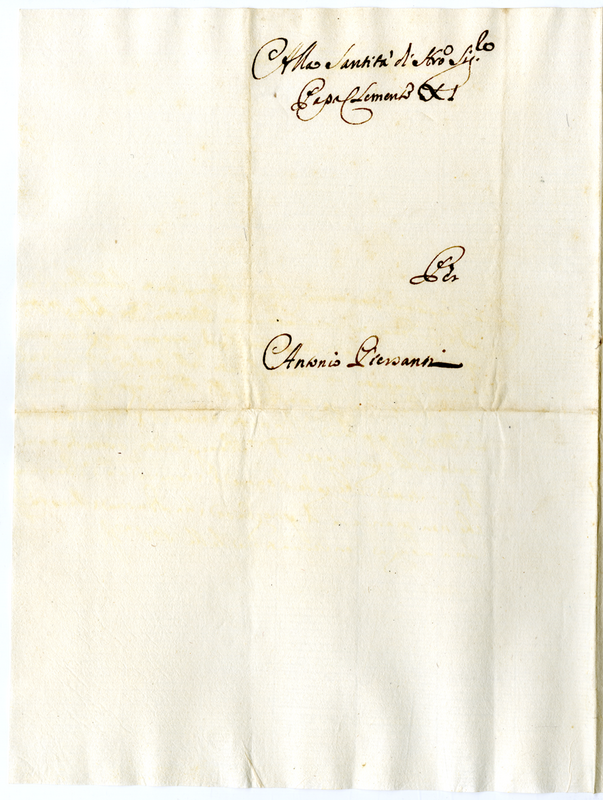 Alla Santità di Nro Sig.re
Papa Clemente XI
Per
Antonio Piersanti